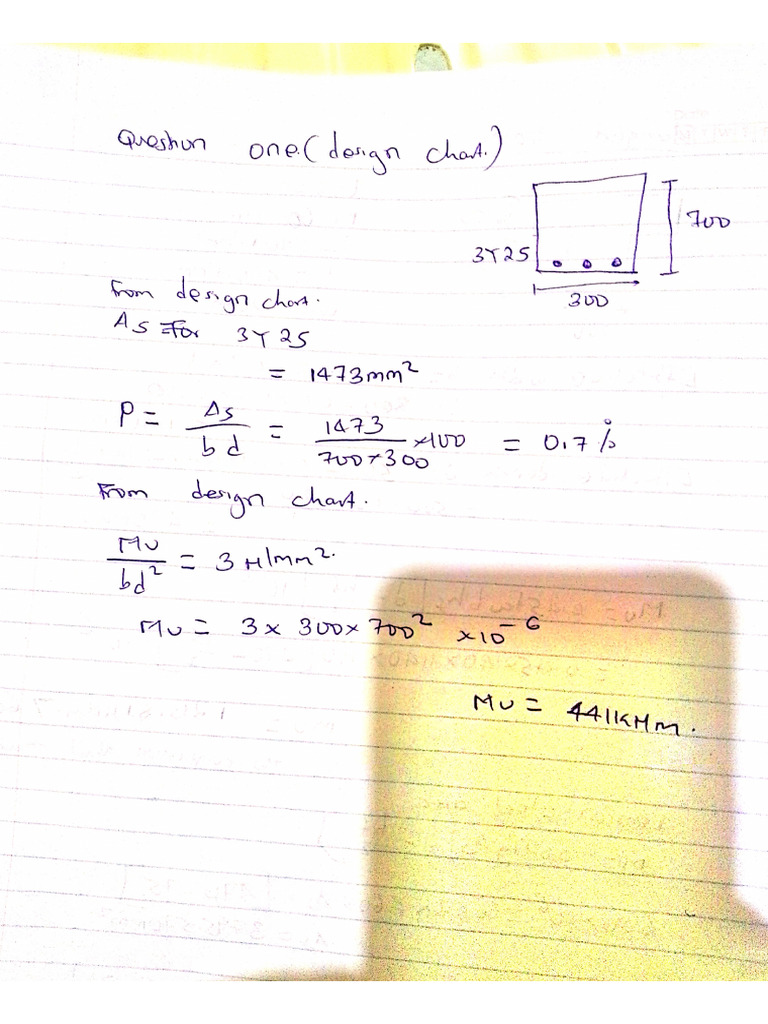 Question one.(design chart.)
700
3Y25
300
From design chart.
As =For 3Y25
= 1473mm²
P = As/bd = 1473/700×300 ×100 = 0.7%
From design chart.
Mu/bd² = 3N/mm².
Mu = 3× 300×700² ×10⁻⁶
Mu = 441kNm.